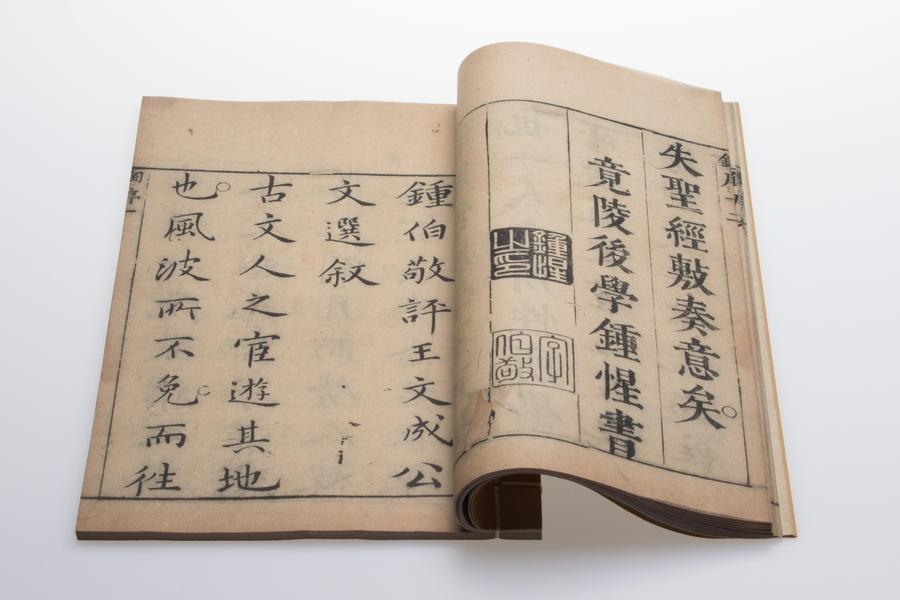 失聖經敷奏意矣
竟陵後學鍾惺書
鍾惺之印
字伯敬
鍾伯敬評王文成公
文選叙
古文人之宦遊其地
也風波所不免而往